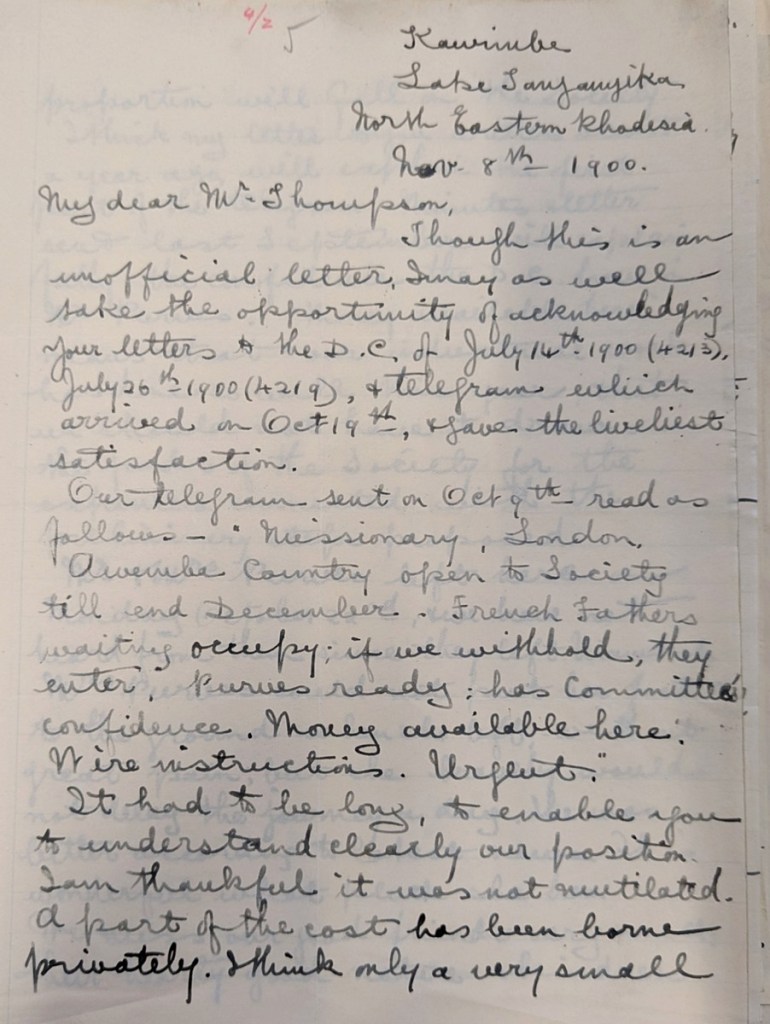 4/2 5
Kawimbe
Lake Tanganyika
North Eastern Rhodesia.
Nov. 8th 1900.
My dear Mr Thompson,
Though this is an
unofficial letter, I may as well
take the opportunity of acknowledging
your letters to the D.C. of July 14th 1900 (4213),
July 26th 1900 (4219), & telegram which
arrived on Oct 19th, & gave the liveliest
satisfaction.
Our telegram sent on Oct 9th read as
follows – "Missionary, London,
Awemba Country open to Society
till end December. French Fathers
waiting occupy; if we withhold, they
enter, Purves ready; has Committee's
confidence. Money available here.
Wire instructions. Urgent."
It had to be long, to enable you
to understand clearly our position.
I am thankful it was not mutilated.
A part of the cost has been borne
privately. I think only a very small